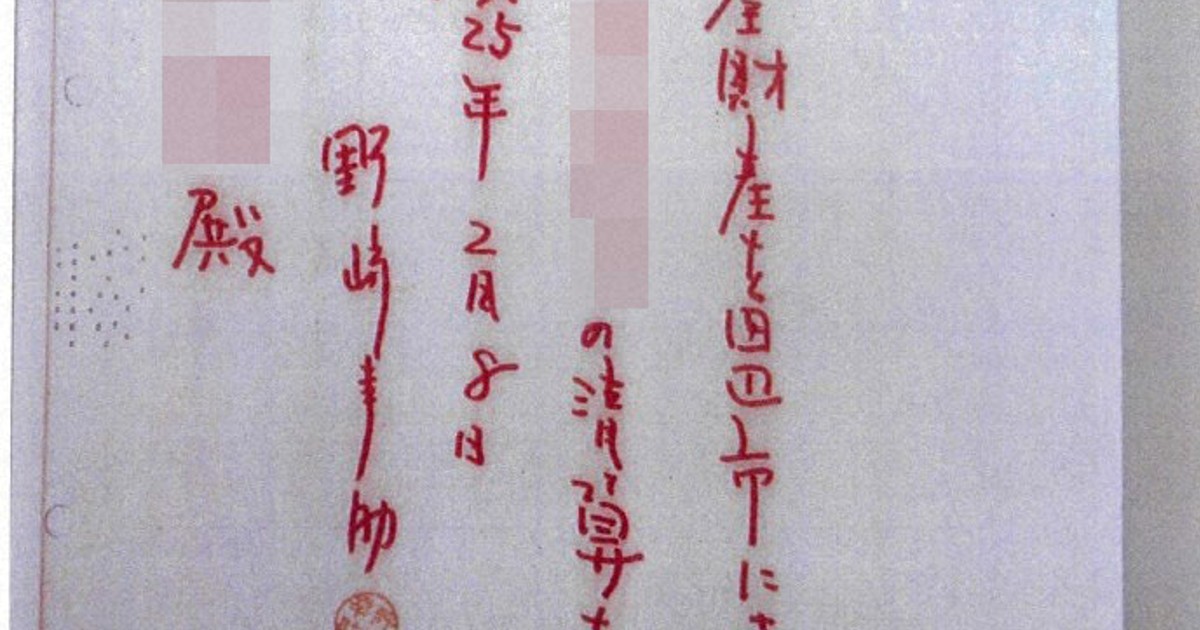 全財産を田辺市に
の清算
25年2月8日
野崎幸助
殿